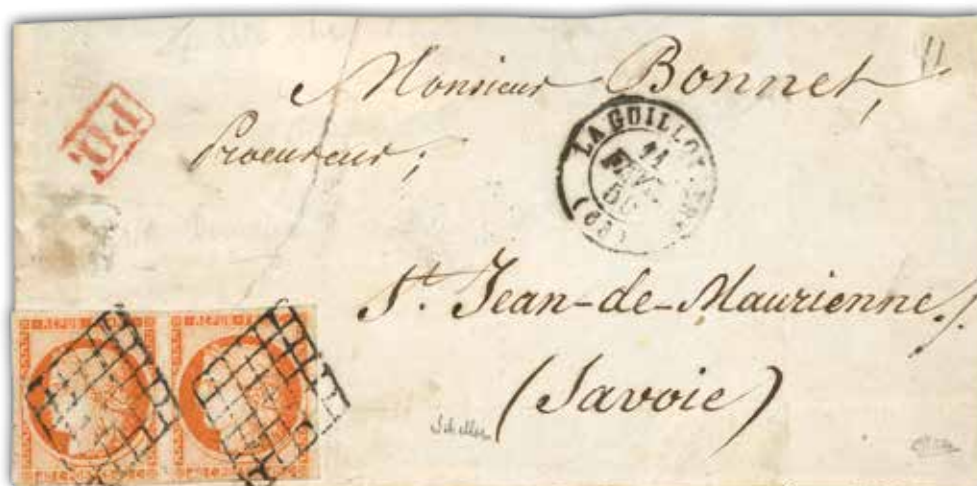 11
Monsieur Bonnet,
Procureur;
PD
LA GUILLOTIERE
11
FEVR
50
(68)
St. Jean-de-Maurienne/.
(Savoie)
REPUB FRANC
REPUB F